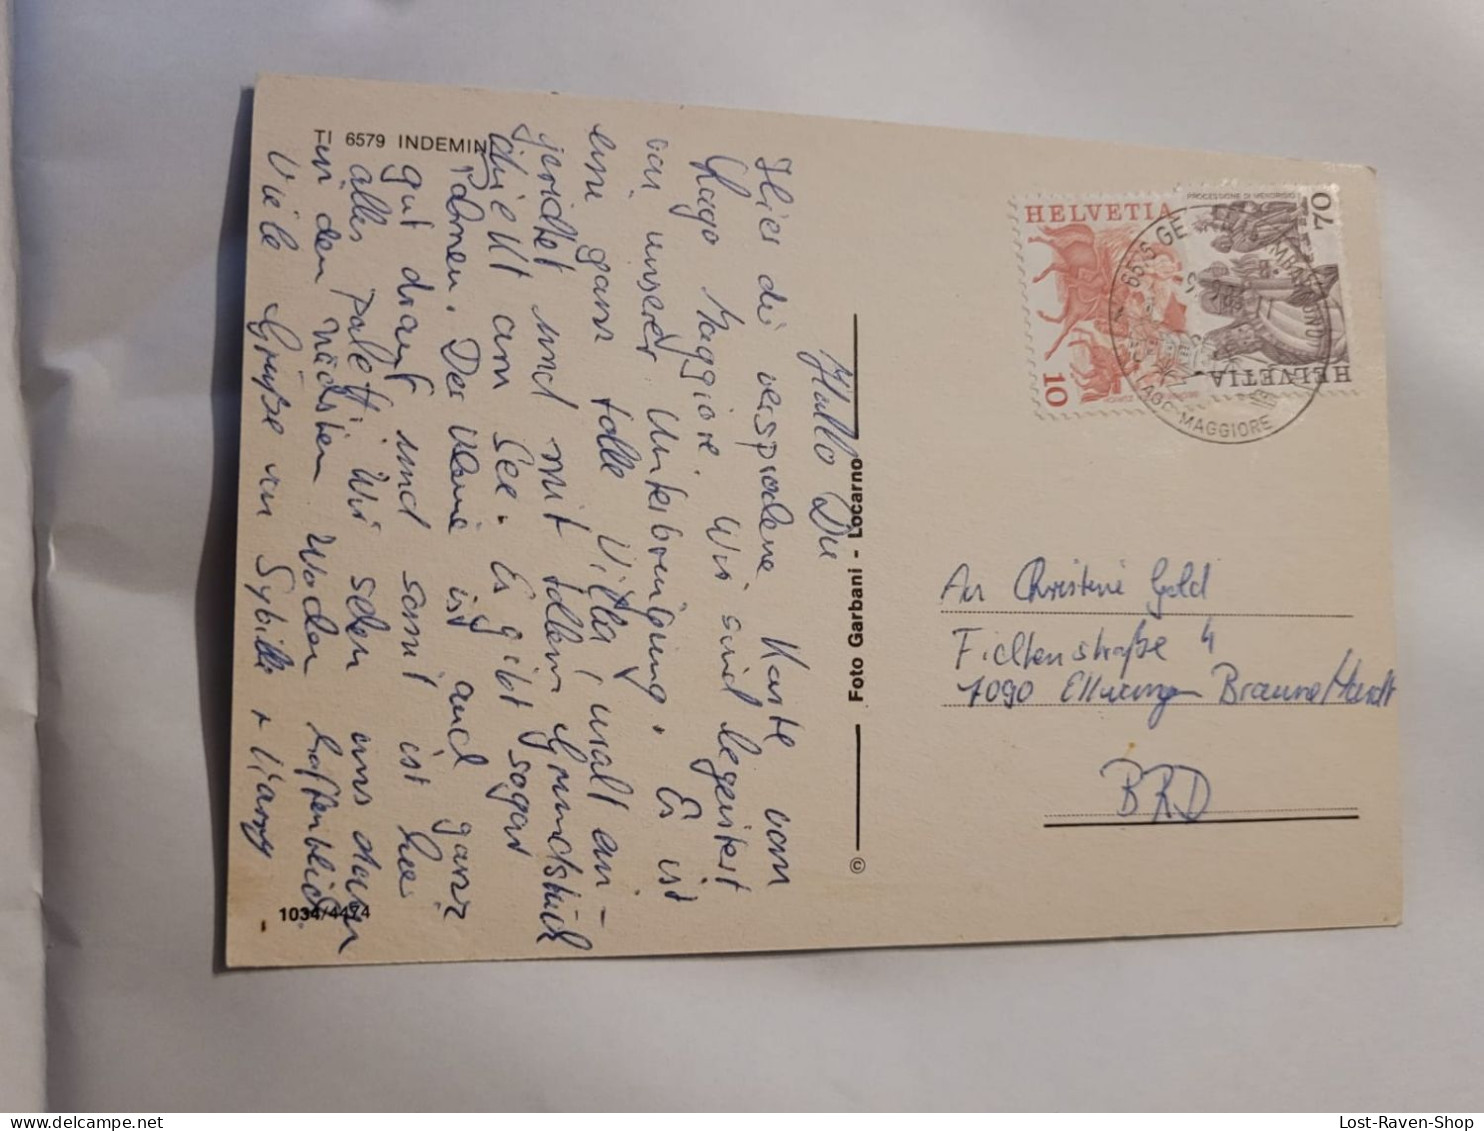 TI 6579 INDEMINI
Hallo Du
Hier die versprochene Karte vom
Lago Maggiore. Wir sind begeistert
von unserer Unterbringung. Es ist
eine ganz tolle Villa, uralt ein-
gerichtet und mit tollem Grundstück
direkt am See. Es gibt sogar
Palmen. Der Kleine ist auch ganz
gut drauf und somit ist hier
alles paletti. Wir sehen uns dann
in den nächsten Wochen hoffentlich
Viele Grüße von Sybille +
1034/4474
© Foto Garbani - Locarno
HELVETIA
10
HELVETIA
70
6575 GE
LAGO MAGGIORE
An Christine Gold
Fichtenstraße 4
7090 Ellwangen Braune Hardt
BRD
Lost-Raven-Shop